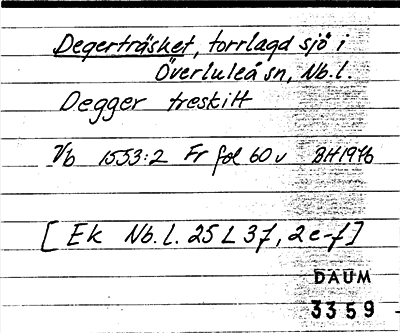 Degerträsket, torrlagd sjö i
Överluleå sn, Nb.l.
Degger treskitt
Vb 1553:2 Fr fol 60 v BH1946
[Ek Nb.l. 25 L 3f, 2e-f]
DAUM
3359